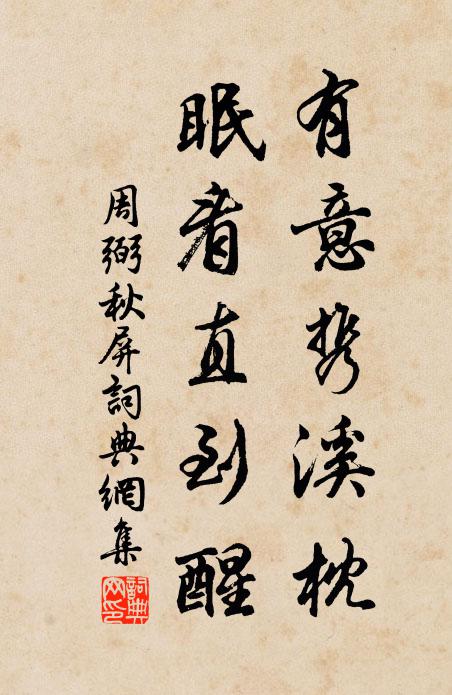 有意携溪枕
眠看直到醒
周弼秋屏詞典網集
詞典網印